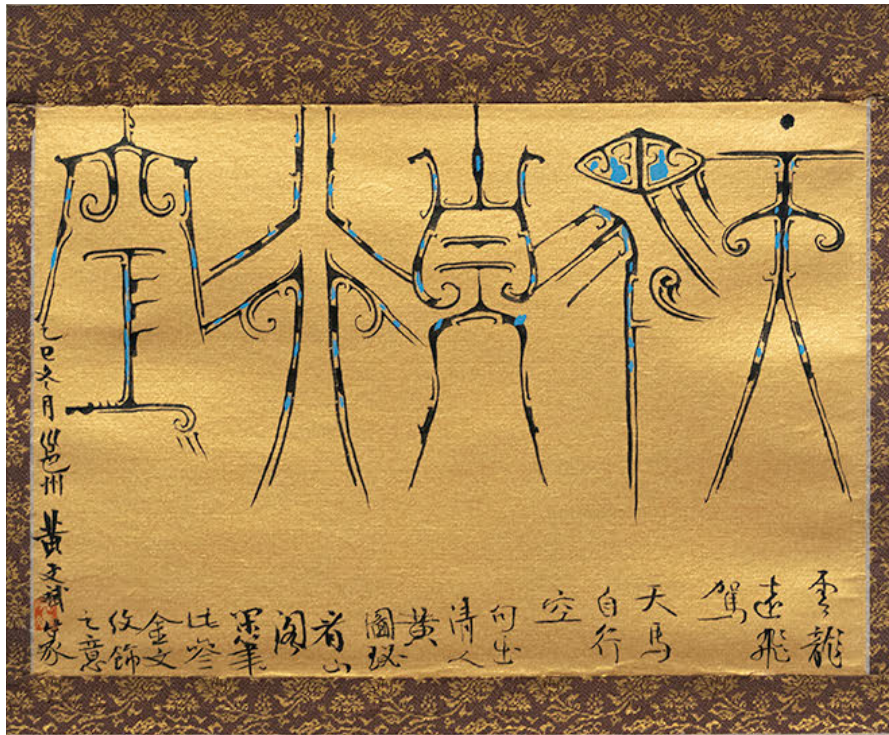 天馬自行空
雲龍
遠飛
駕
天馬
自行
空
句出
清人
黃
圖珌
看山
閣
筆
此參
金文
紋飾
之意
乙巳冬月邕州黃文斌篆